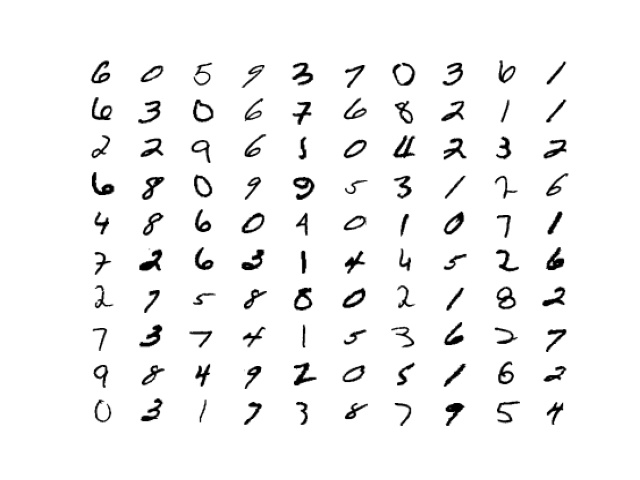 6 0 5 9 3 7 0 3 6 1
6 3 0 6 7 6 8 2 1 1
2 2 9 6 1 0 4 2 3 2
6 8 0 9 9 5 3 1 2 6
4 8 6 0 4 0 1 0 7 1
7 2 6 3 1 4 4 5 2 6
2 7 5 8 8 0 2 1 8 2
7 3 7 4 1 5 3 6 2 7
9 8 4 9 2 0 5 1 6 2
0 3 1 7 3 8 7 9 5 4